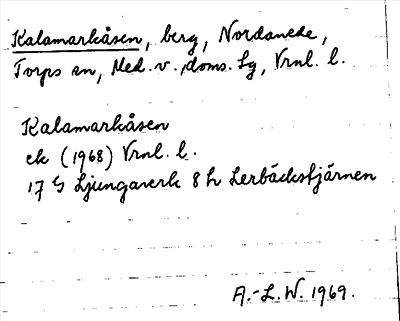 Kalamarkåsen, berg, Nordanede,
Torps sn, Med. v., doms. Lg, Vrnl. l.
Kalamarkåsen
ek (1968) Vrnl. l.
17 G Ljungaverk 8 h Lerbäckstjärnen
A.-L.W. 1969.